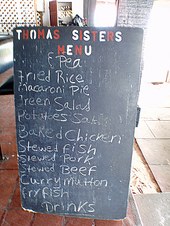 THOMAS SISTERS
MENU
Pea
Fried Rice
Macaroni Pie
Green Salad
Potatoes Salad
Baked Chicken
Stewed Fish
Stewed Pork
Stewed Beef
Curry Mutton
Fry Fish
Drinks